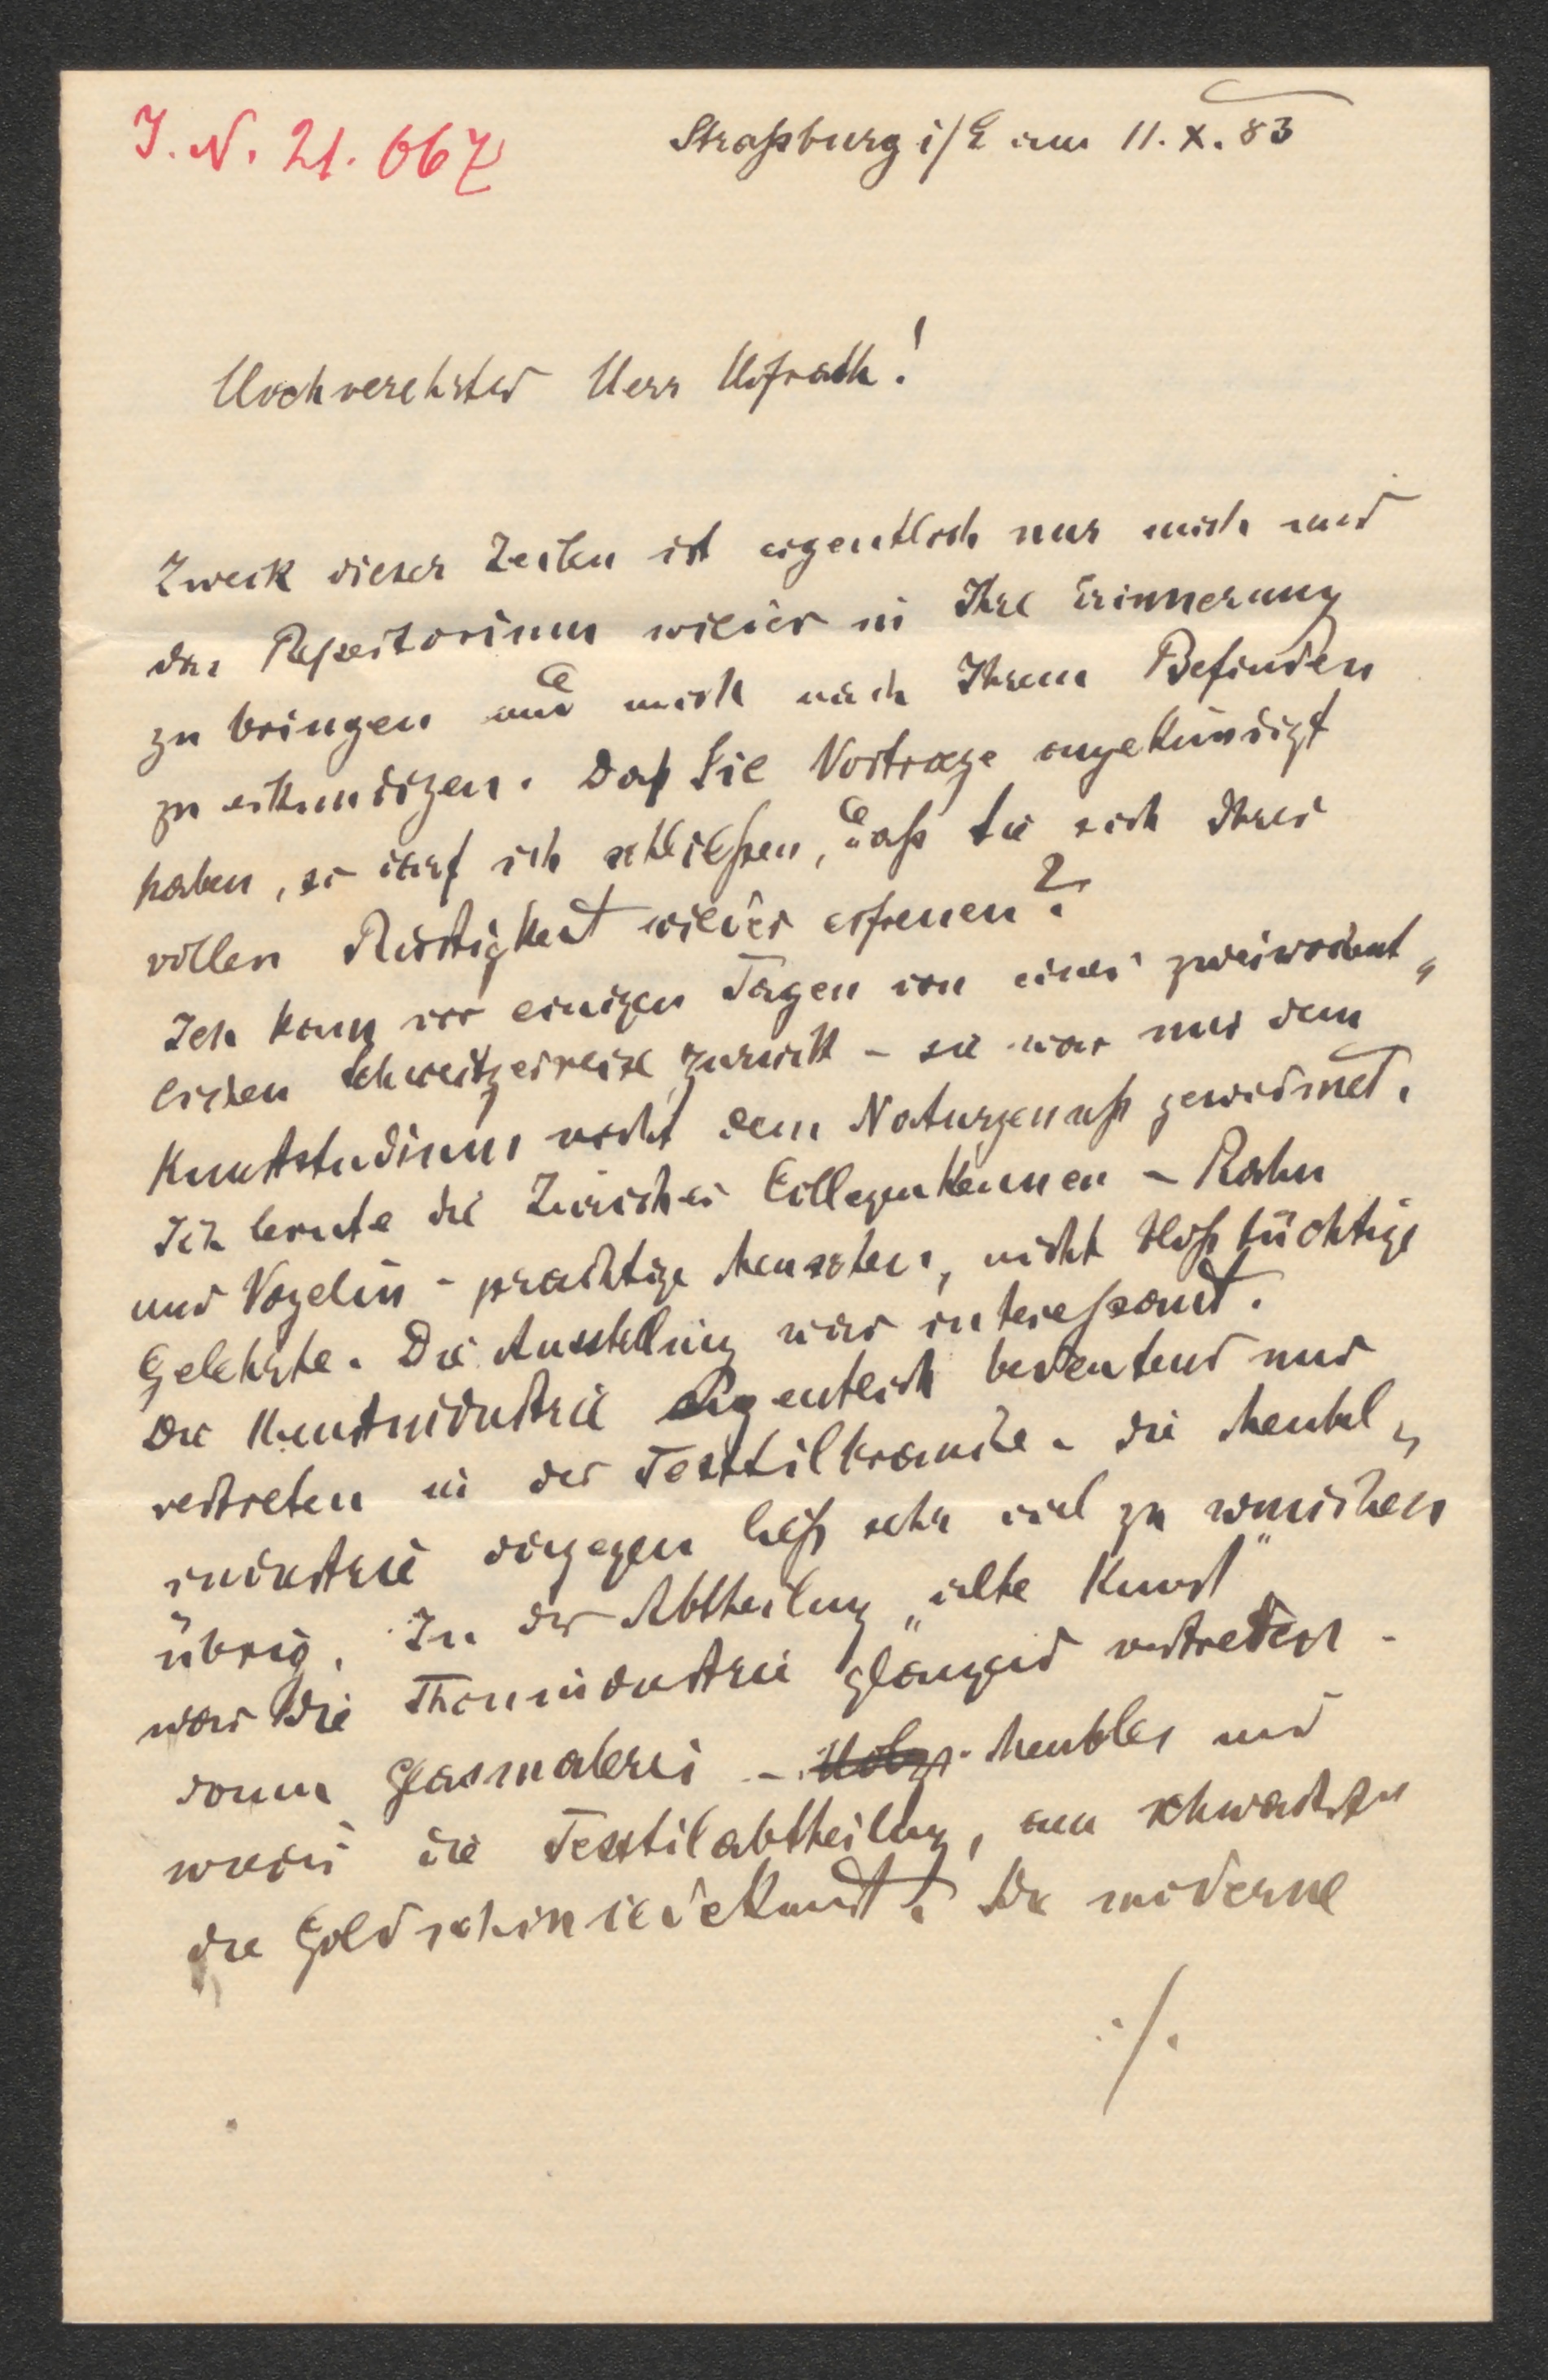 I.N. 21.667
Straßburg i/E am 11.X.83
Hochverehrter Herr Hofrath!
Zweck dieser Zeilen ist eigentlich nur mich und
das Repertorium wieder in Ihre Erinnerung
zu bringen und mich nach Ihrem Befinden
zu erkundigen. Daß Sie Vortraege angekündigt
haben, so darf ich schließen, daß Sie sich Ihrer
vollen Rüstigkeit wieder erfreuen?
Ich kam vor einigen Tagen von einer zweiwöchent„
lichen Schweitzerreise zurück – sie war nur dem
Kunststudium nicht dem Naturgenuß gewidmet.
Ich lernte die Züricher Collegen kennen – Rahn
und Vögelin – prächtige Menschen, nicht bloß tüchtige
Gelehrte. Die Ausstellung war interessant.
Die Kunstindustrie eigentlich bedeutend nur
vertreten in der Textilbranche. die Meubel„
industrie dagegen ließ sehr viel zu wünschen
übrig. In der Abtheilung „alte Kunst"
war die Thonindustrie glänzend vertreten –
dann Glasmalerei – Holz- Meubles und
die Textilabtheilung, am schwächsten
die Goldschmiedekunst. Die moderne
./.